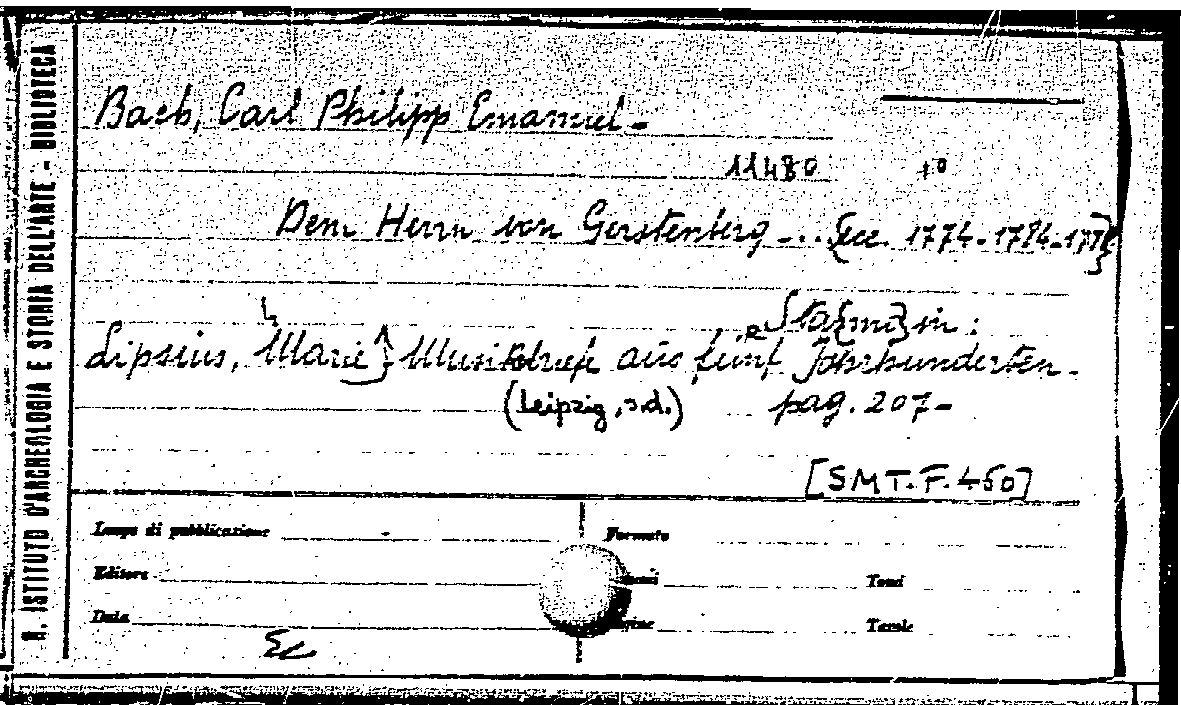 R. ISTITUTO D'ARCHEOLOGIA E STORIA DELL'ARTE - BIBLIOTECA
Bach, Carl Philipp Emanuel -
11480
Dem Herrn von Gerstenberg - ... 1774-1784-
in:
Lipsius, Marie} Musikbriefe aus fünf Jahrhunderten.
(Leipzig, s.d.) pag. 207-
[SMT.F.450]
Luogo di pubblicazione Formato
Editore Tomi
Data Tavole